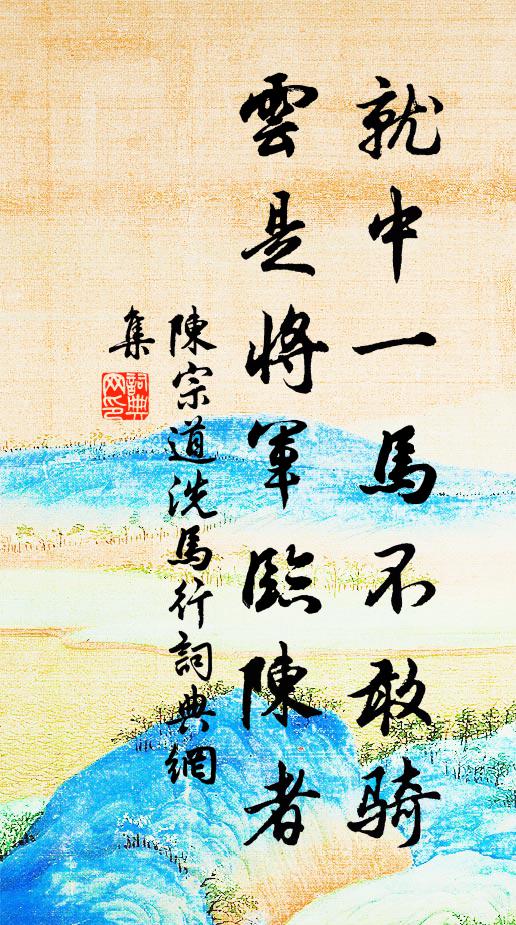 就中一馬不敢骑
雲是將軍臨陳者
陳宗道洗馬行詞典網
集
詞典網印